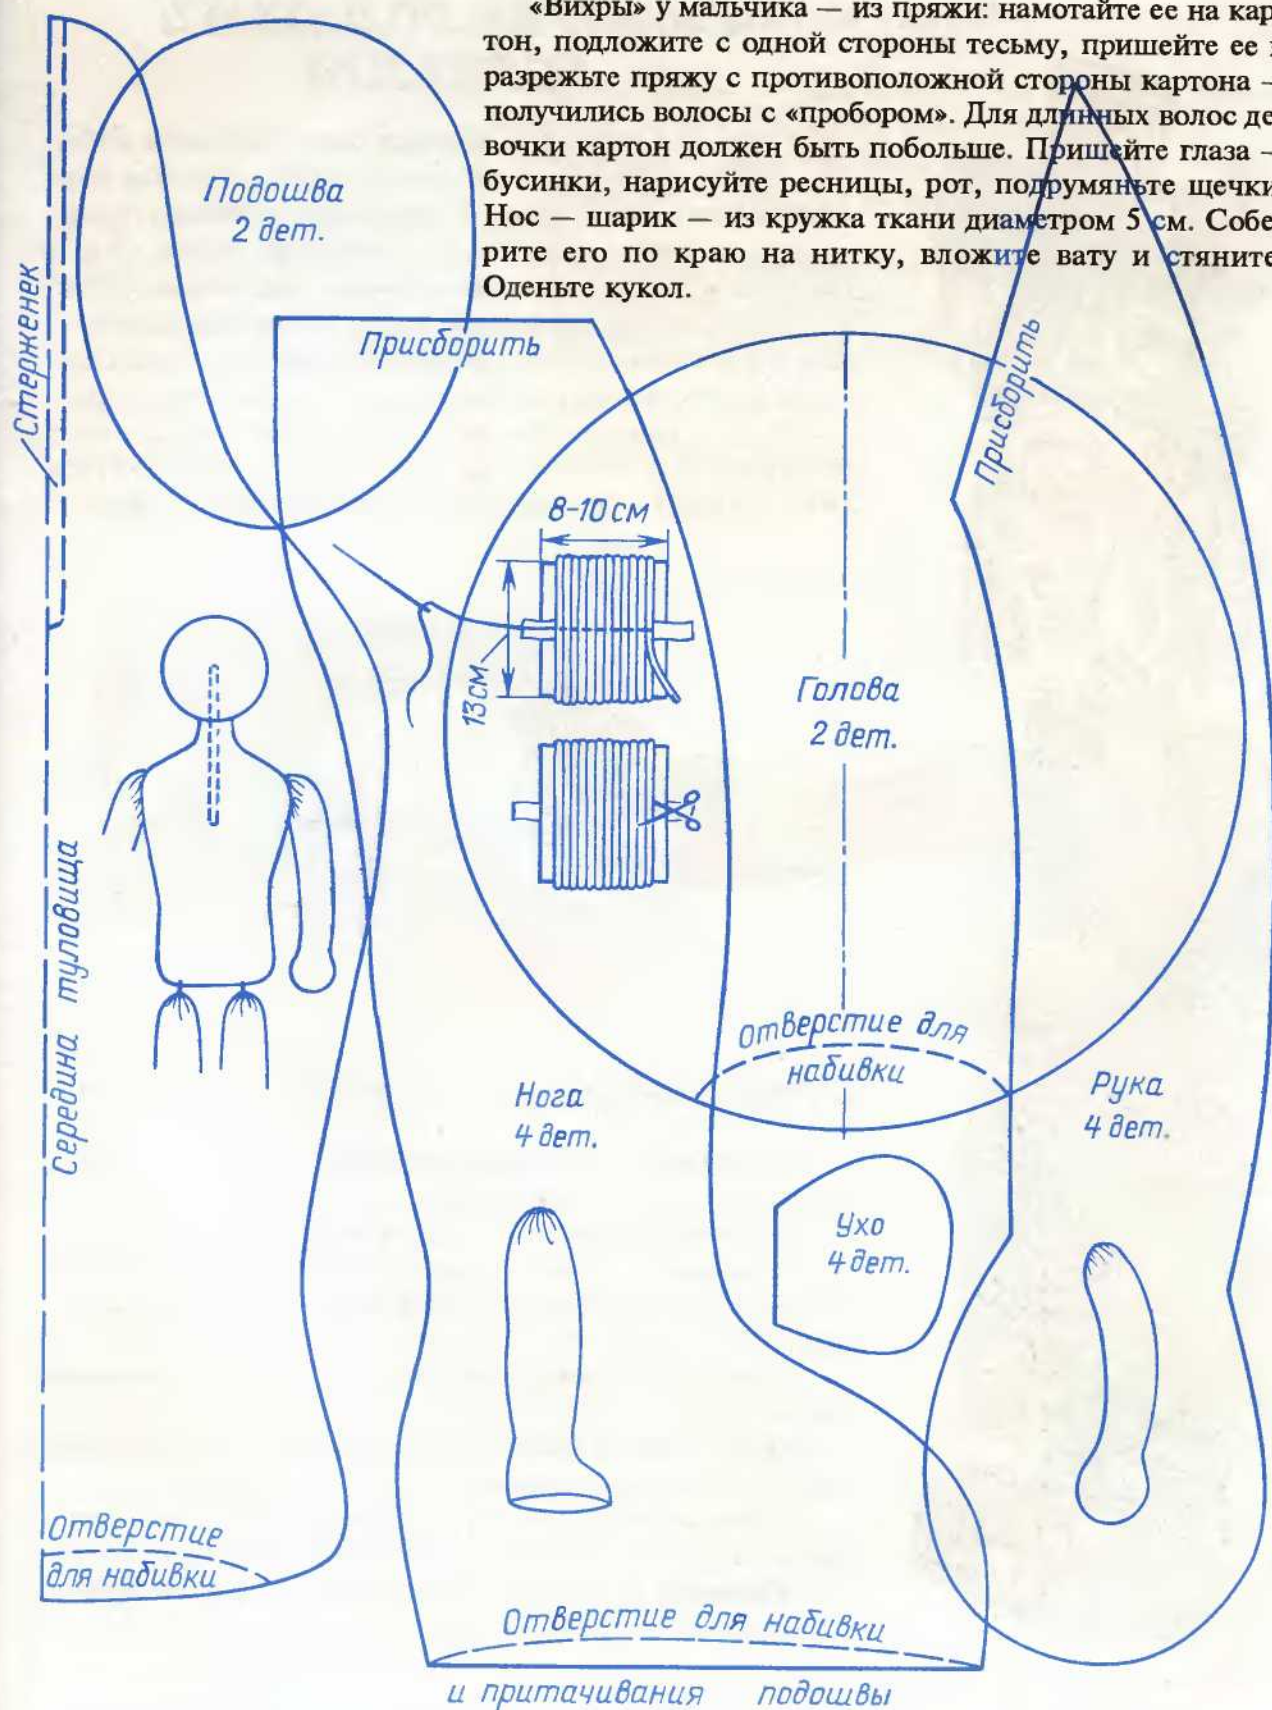 «Вихры» у мальчика — из пряжи: намотайте ее на кар
тон, подложите с одной стороны тесьму, пришейте ее
разрежьте пряжу с противоположной стороны картона —
получились волосы с «пробором». Для длинных волос де
вочки картон должен быть побольше. Пришейте глаза —
бусинки, нарисуйте ресницы, рот, подрумяньте щечки
Нос — шарик — из кружка ткани диаметром 5 см. Собе
рите его по краю на нитку, вложите вату и стяните
Оденьте кукол.
Подошва
2 дет.
Стерженек
Присборить
Присборить
8-10 см
13 см
Голова
2 дет.
Середина туловища
отверстие для
набивки
Нога
4 дет.
Рука
4 дет.
Ухо
4 дет.
Отверстие
для набивки
Отверстие для набивки
и притачивания подошвы